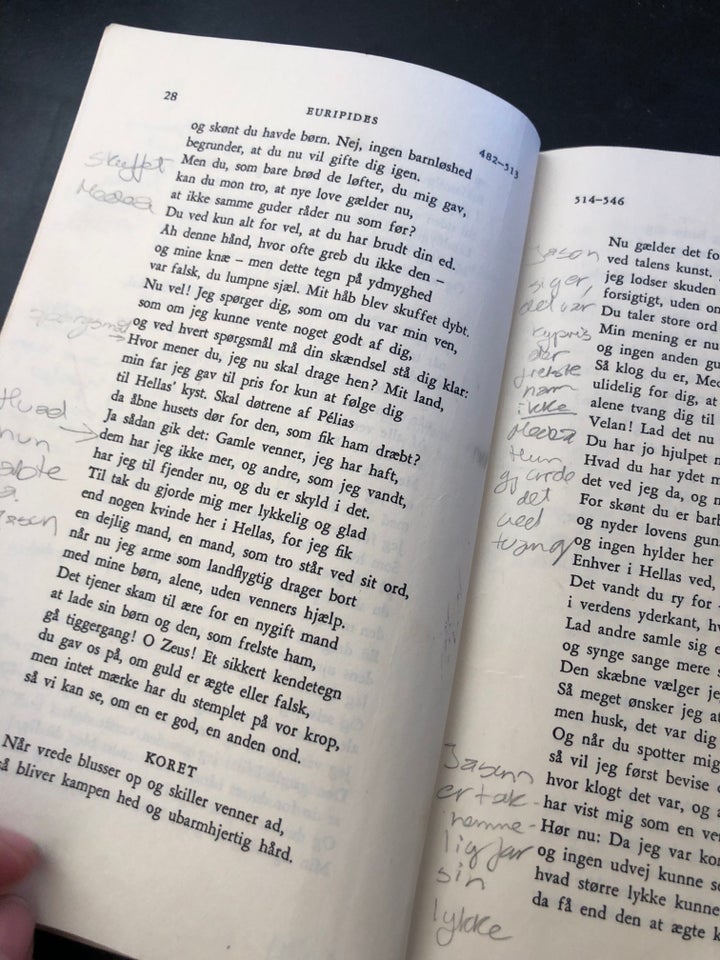 28
EURIPIDES
482–513
og skønt du havde børn. Nej, ingen barnløshed
begrunder, at du nu vil gifte dig igen.
Men du, som bare brød de løfter, du mig gav,
kan du mon tro, at nye love gælder nu,
at ikke samme guder råder nu som før?
Du ved kun alt for vel, at du har brudt din ed.
Ah denne hånd, hvor ofte greb du ikke den –
og mine knæ – men dette tegn på ydmyghed
var falsk, du lumpne sjæl. Mit håb blev skuffet dybt.
Nu vel! Jeg spørger dig, som om du var min ven,
som om jeg kunne vente noget godt af dig,
og ved hvert spørgsmål må din skændsel stå dig klar:
Hvor mener du, jeg nu skal drage hen? Mit land,
min far jeg gav til pris for kun at følge dig
til Hellas' kyst. Skal døtrene af Pélias
da åbne husets dør for den, som fik ham dræbt?
Ja sådan gik det: Gamle venner, jeg har haft,
dem har jeg ikke mer, og andre, som jeg vandt,
har jeg til fjender nu, og du er skyld i det.
Til tak du gjorde mig mer lykkelig og glad
end nogen kvinde her i Hellas, for jeg fik
en dejlig mand, en mand, som tro står ved sit ord,
når nu jeg arme som landflygtig drager bort
med mine børn, alene, uden venners hjælp.
Det tjener skam til ære for en nygift mand
at lade sin børn og den, som frelste ham,
gå tiggergang! O Zeus! Et sikkert kendetegn
du gav os på, om guld er ægte eller falsk,
men intet mærke har du stemplet på vor krop,
så vi kan se, om en er god, en anden ond.
KORET
Når vrede blusser op og skiller venner ad,
så bliver kampen hed og ubarmhjertig hård.
skuffet
Medea
spørgsmål
Hvad
hun
Jason
514–546
Nu gælder det fo
ved talens kunst.
jeg lodser skuden
forsigtigt, uden on
Du taler store ord
Min mening er nu
og ingen anden gu
Så klog du er, Med
ulidelig for dig, at
alene tvang dig til
Velan! Lad det nu
Du har jo hjulpet n
Hvad du har ydet m
det ved jeg da, og n
For skønt du er barb
og nyder lovens gun
og ingen hylder her
Enhver i Hellas ved,
Det vandt du ry for
i verdens yderkant, hv
Lad andre samle sig e
og synge sange mere s
Den skæbne vælger je
Så meget ønsker jeg a
men husk, det var dig
Og når du spotter mig
så vil jeg først bevise d
hvor klogt det var, og a
har vist mig som en ve
Hør nu: Da jeg var kom
og ingen udvej kunne s
hvad større lykke kunne
da få end den at ægte k
Jason
siger,
det var
kypris
der
frelste
ham
ikke
Medea
Hun
gjorde
det
ved
tvang
Jason
er tak-
nemme-
lig for
sin
lykke